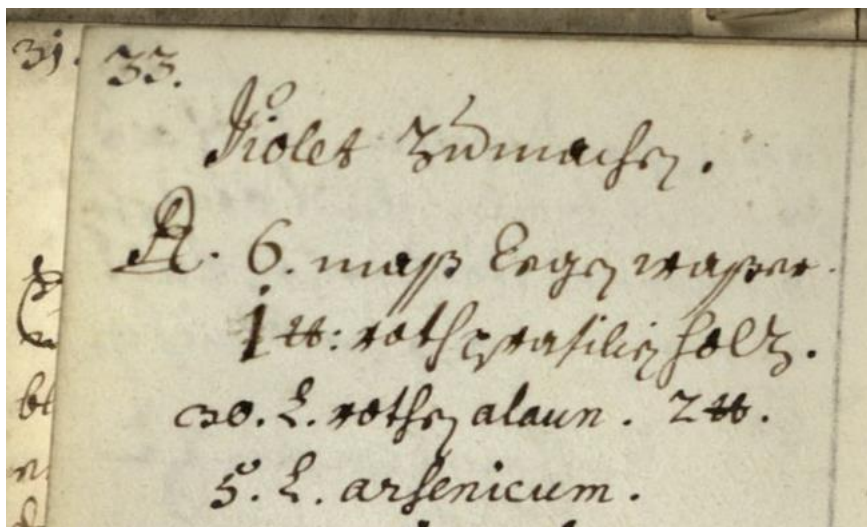 31. 33.
Violet Zumachen.
R. 6. mass Regen wasser.
1 ℔: roth prasilien holz.
30. L. rothen alaun. 2 ℔.
5. L. arsenicum.